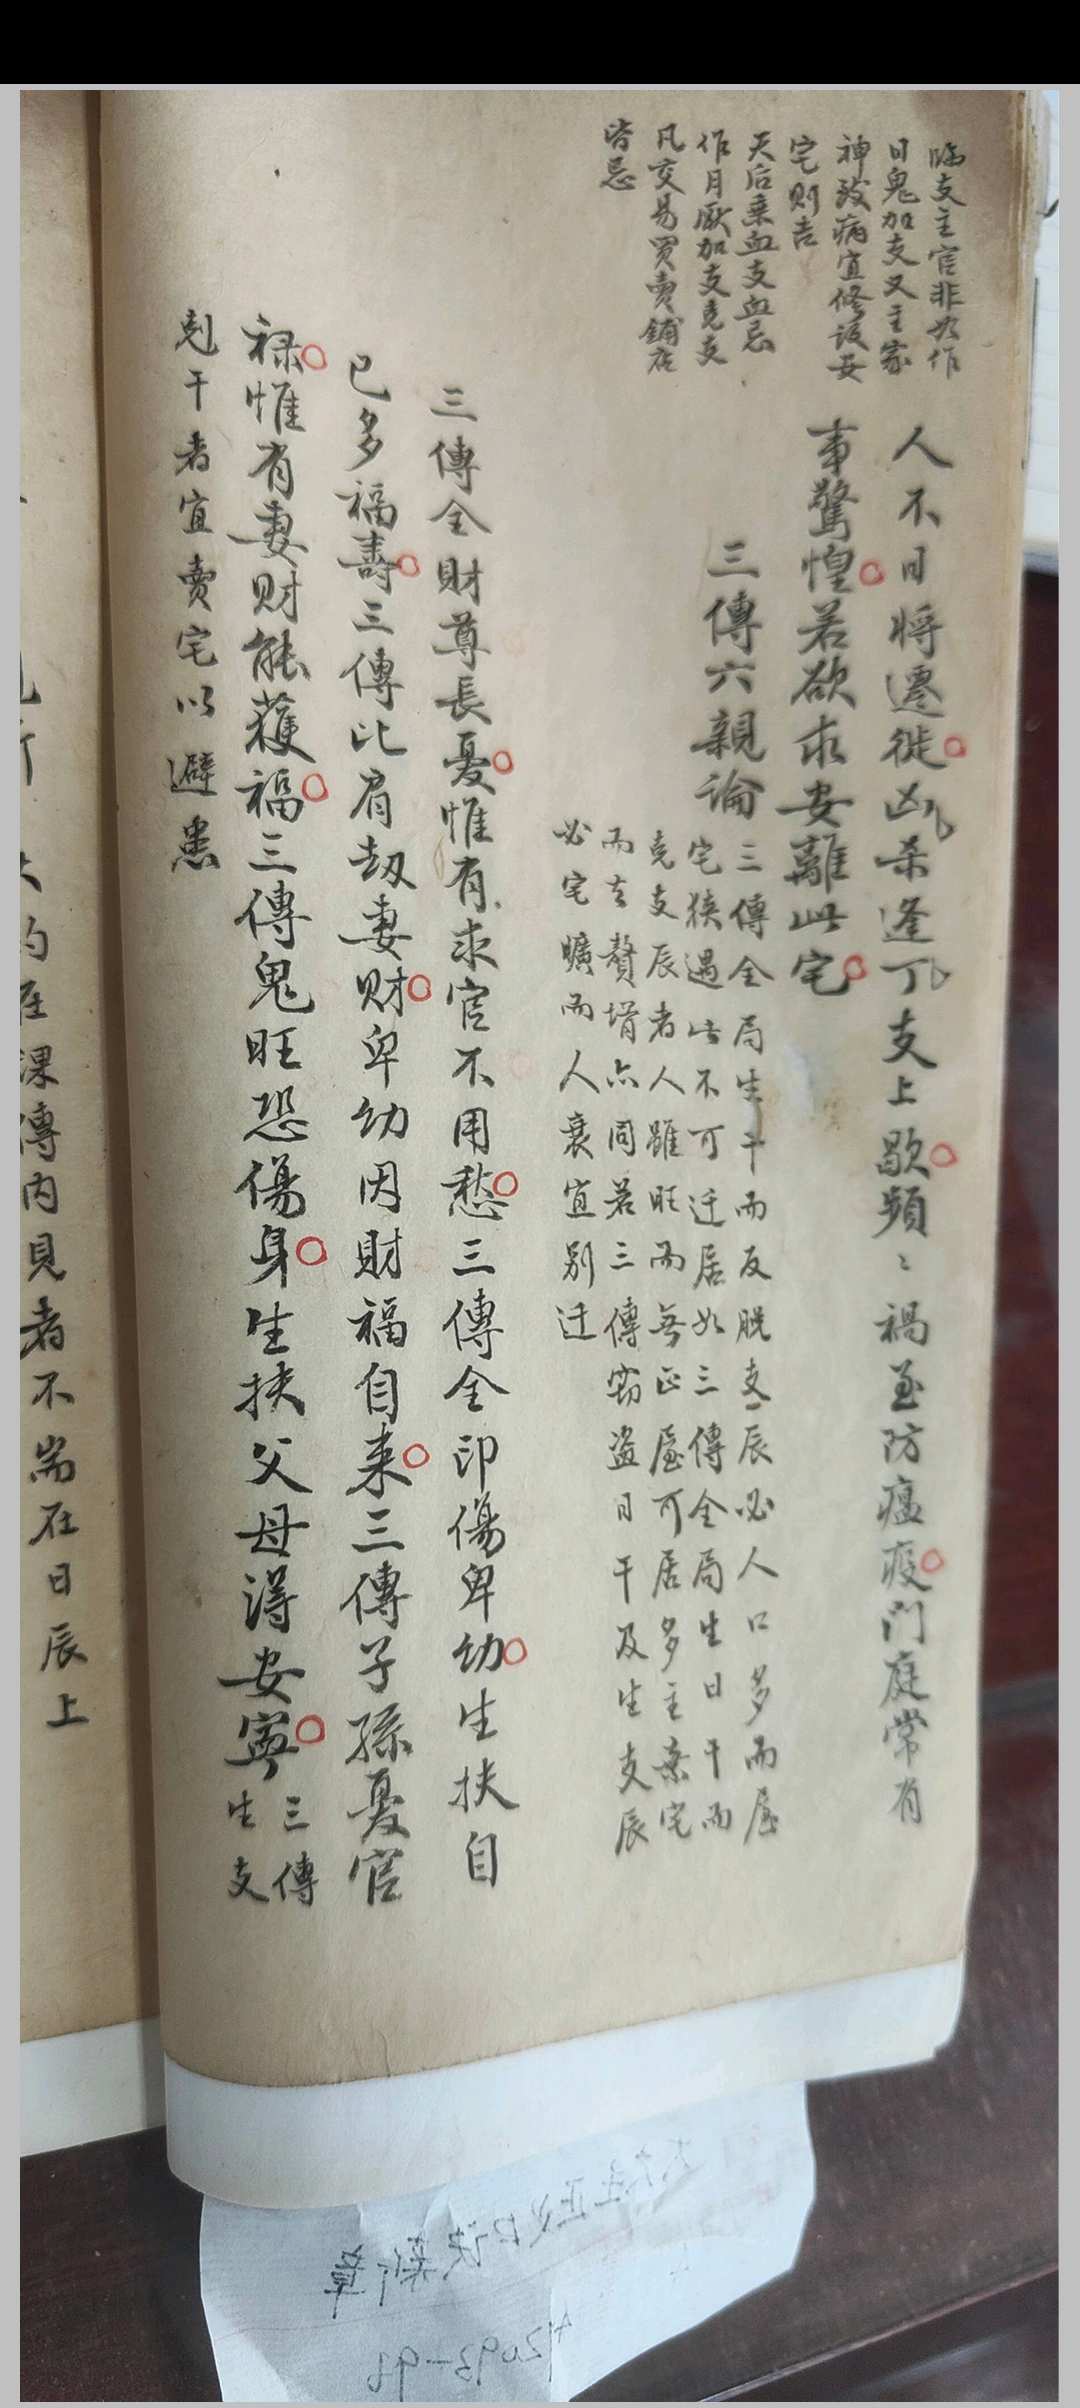 臨支主官非如作
日鬼加支又主家
神致病宜修设安
宅則吉
天后乘血支血忌
作月厭加支克支
凡交易買賣鋪店
皆忌
人不日將遷徙凶杀逢丁支上歇頻〻禍至防瘟疫門庭常有
事驚惶若欲求安離此宅
三傳六親論
三傳全局生干而反脱支辰必人口多而屋
宅狹遇此不可迁居如三傳全局生日干而
克支辰者人雖旺而無正屋可居多主棄宅
而去贅壻亦同若三傳窃盗日干及生支辰
必宅曠而人衰宜别迁
三傳全財尊長憂惟有求官不用愁三傳全印傷卑幼生扶自
己多福壽三傳比肩劫妻财卑幼因財福自来三傳子孫憂官
禄惟有妻财能获福三傳鬼旺恐傷身生扶父母得安寧
三傳
生支
剋干者宜賣宅以避患
課傳内見者不耑在日辰上
大六壬正义口诀新章